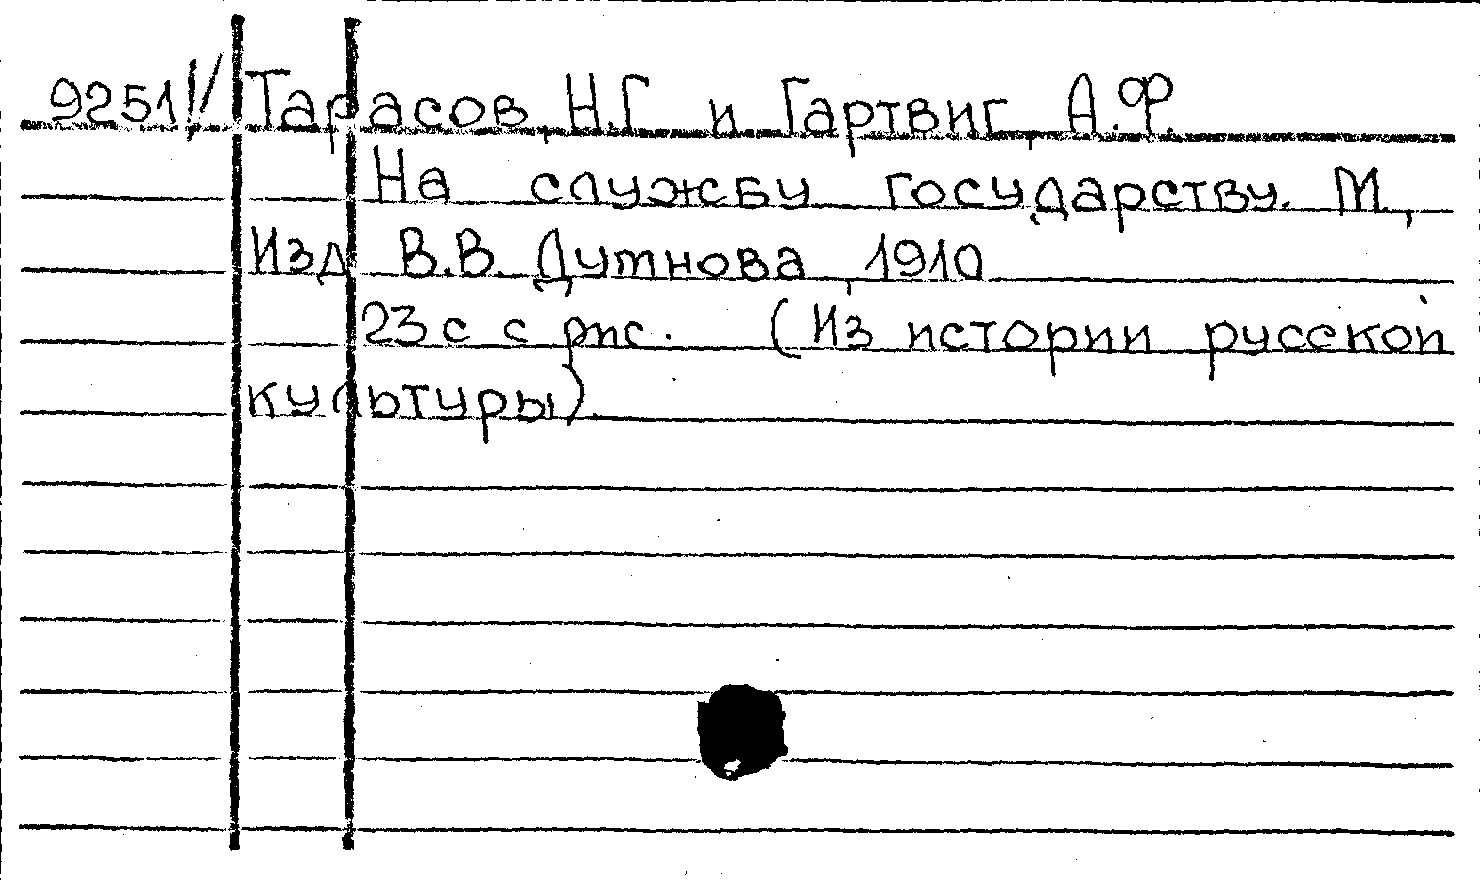 9251!/ Тарасов, Н.Г и Гартвиг, А.Ф.
На службу государству. М.,
Изд В.В. Думнова, 1910
23 с с рис. (Из истории русской
культуры).